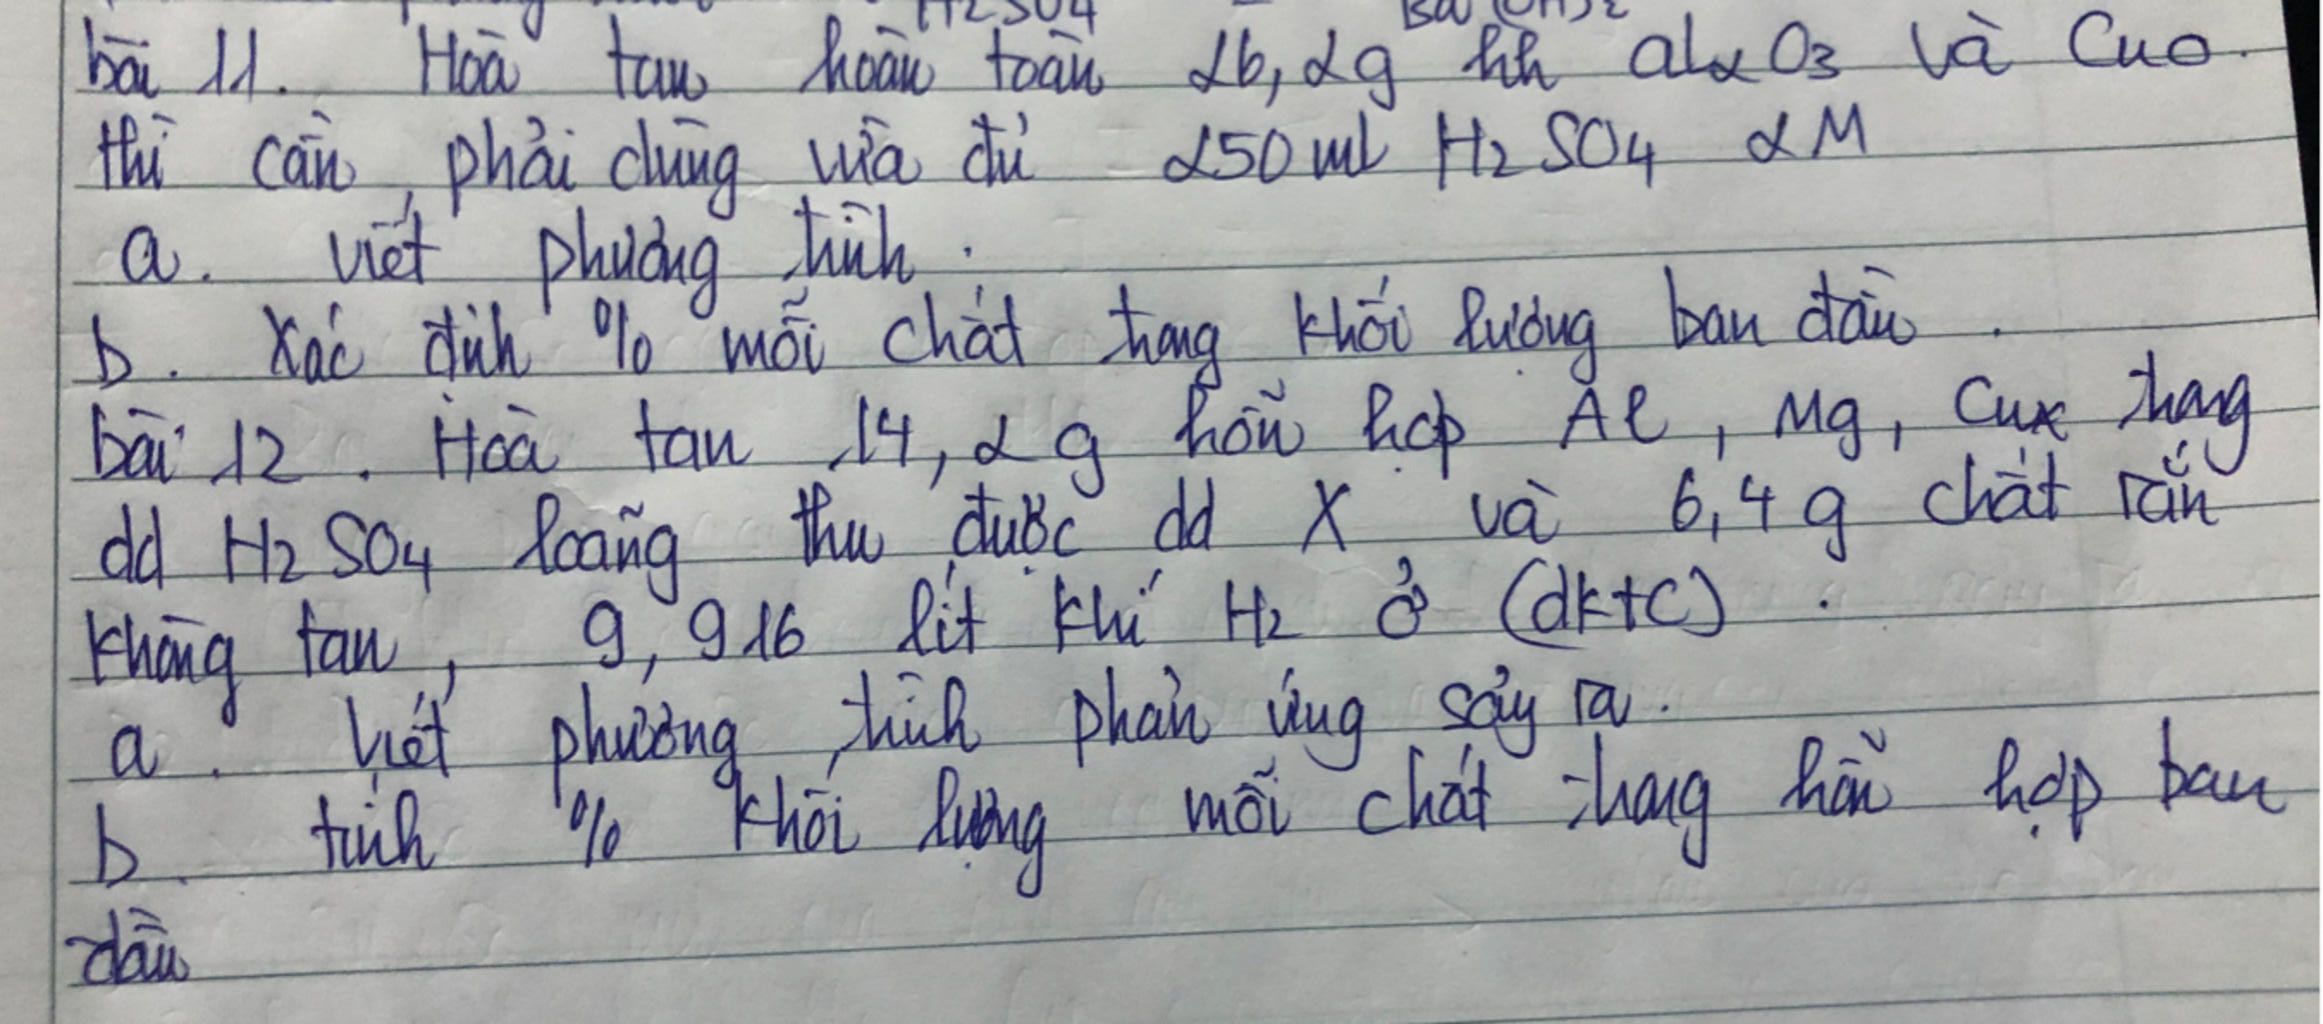 H2SO4
bài 11. Hoà tan hoàn toàn 26,2g hh al2O3 và Cuo.
thì cần phải dùng vừa đủ 250ml H2SO4 2M
a. viết phương trình.
b. Xác định % mỗi chất trong khối lượng ban đầu.
bài 12. Hoà tan 14,2g hỗn hợp Al, Mg, Cu trong
dd H2SO4 loãng thu được dd X và 6,4g chất rắn
không tan, 9,916 lít khí H2 ở (dktc).
a. Viết phương trình phản ứng sảy ra.
b. tính % khối lượng mỗi chất trong hỗn hợp ban
đầu